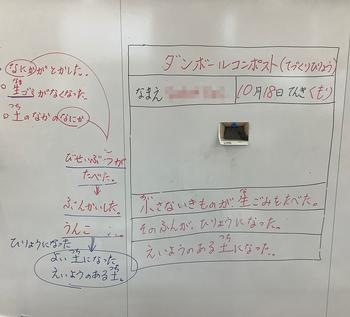 ○ なにかがとかした。
○ 生ゴミがなくなった。
○ 土のなかのなにか
つち
びせいぶつが
たべた。
ぶんかいした。
うんこ ・・・
ひりょうになった
よい土になった
つち
えいようのある土。
つち
ダンボールコンポスト(てづくりひりょう)
なまえ
10月18日 てんき くもり
小さないきものが生ごみをたべた。
そのふんが、ひりょうになった。
えいようのある土になった。
つち